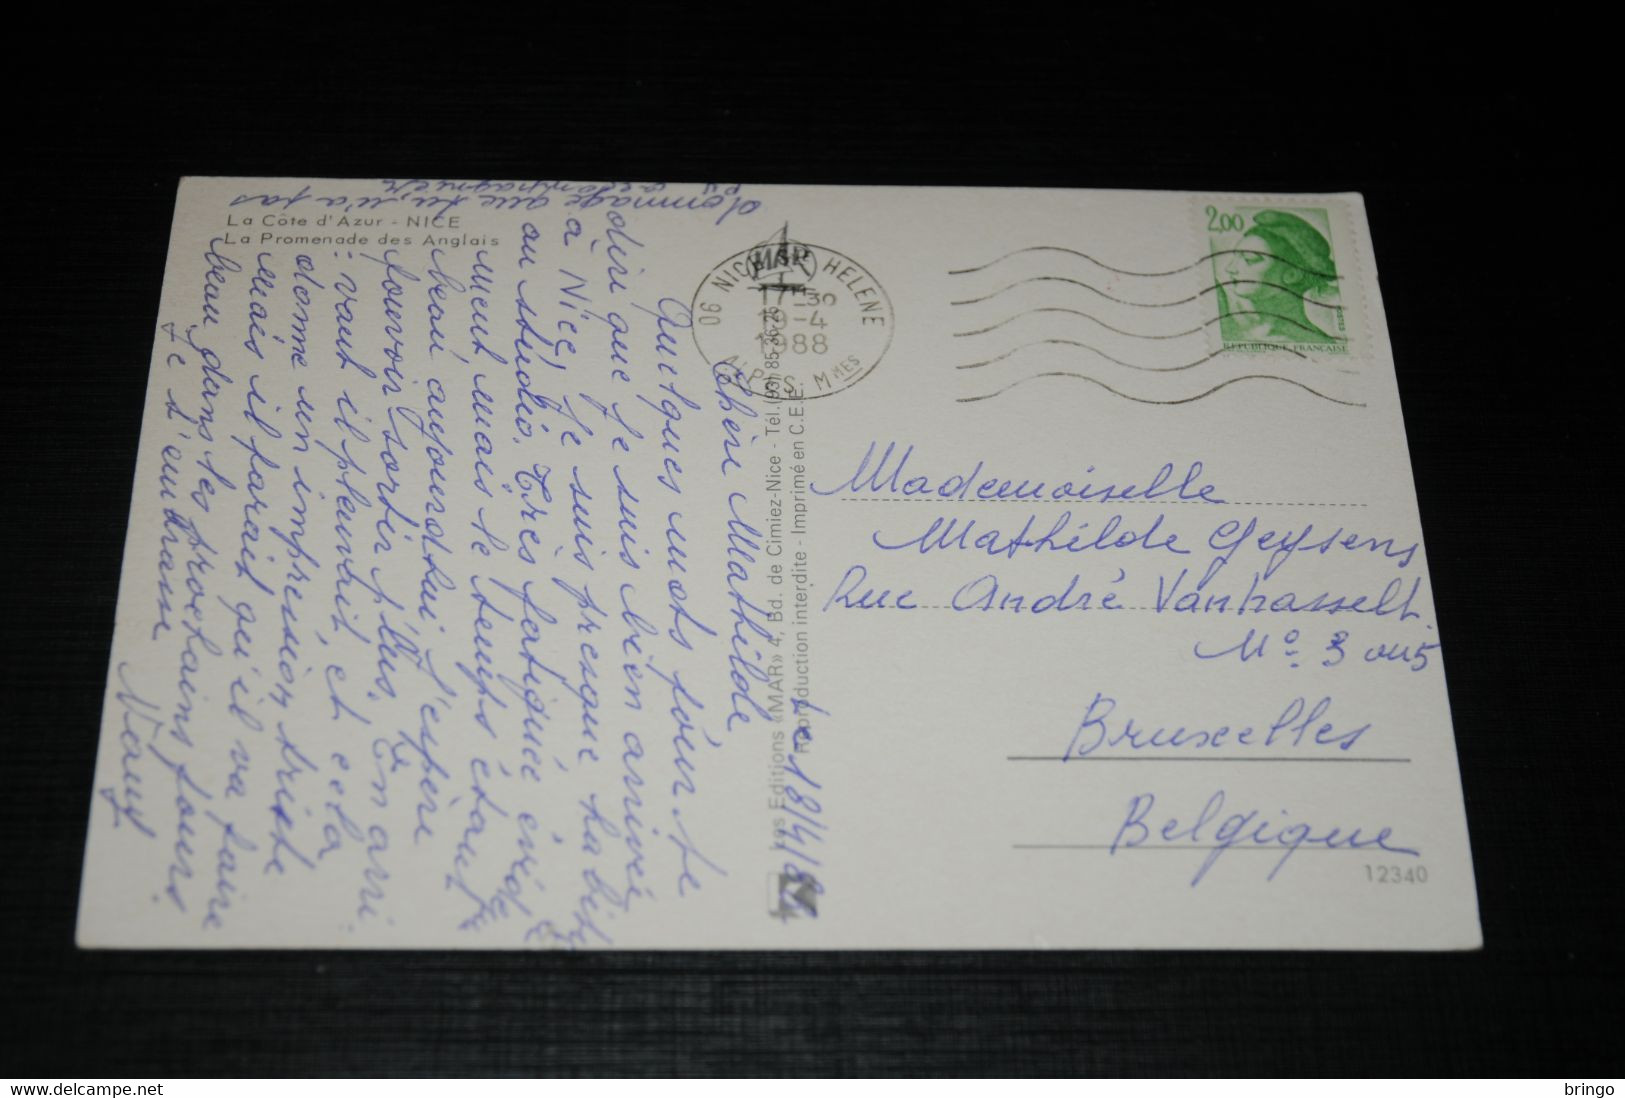 La Côte d'Azur - NICE
La Promenade des Anglais
Le 18/4/88
Chère Mathilde
Quelques mots pour te
dire que je suis bien arrivée
à Nice, je suis presque
au studio. Très fatiguée
ment, mais le temps étant
beau aujourd'hui j'espère
pouvoir sortir plus. En arri
vant il pleuvait, et cela
donne un impression triste
Mais il parait qu'il va faire
beau dans les prochains jours
Je t'embrasse
dommage que tu n'a pas
pu accompagner
MAR
06 NICE HELENE
17H30
18-4
1988
ALPES MMES
Les Editions «MAR» 4, Bd. de Cimiez-Nice - Tél. (93) 85.36.26
Reproduction interdite - Imprimé en C.E.E.
2,00
REPUBLIQUE FRANÇAISE
Mademoiselle
Mathilde Geysens
Rue André Vanhasselt.
No. 3 ou 5
Bruxelles
Belgique
12340
bringo